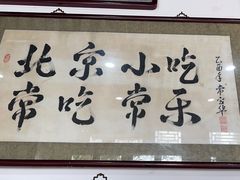 北京小吃
常吃常乐
乙酉年 常宝华